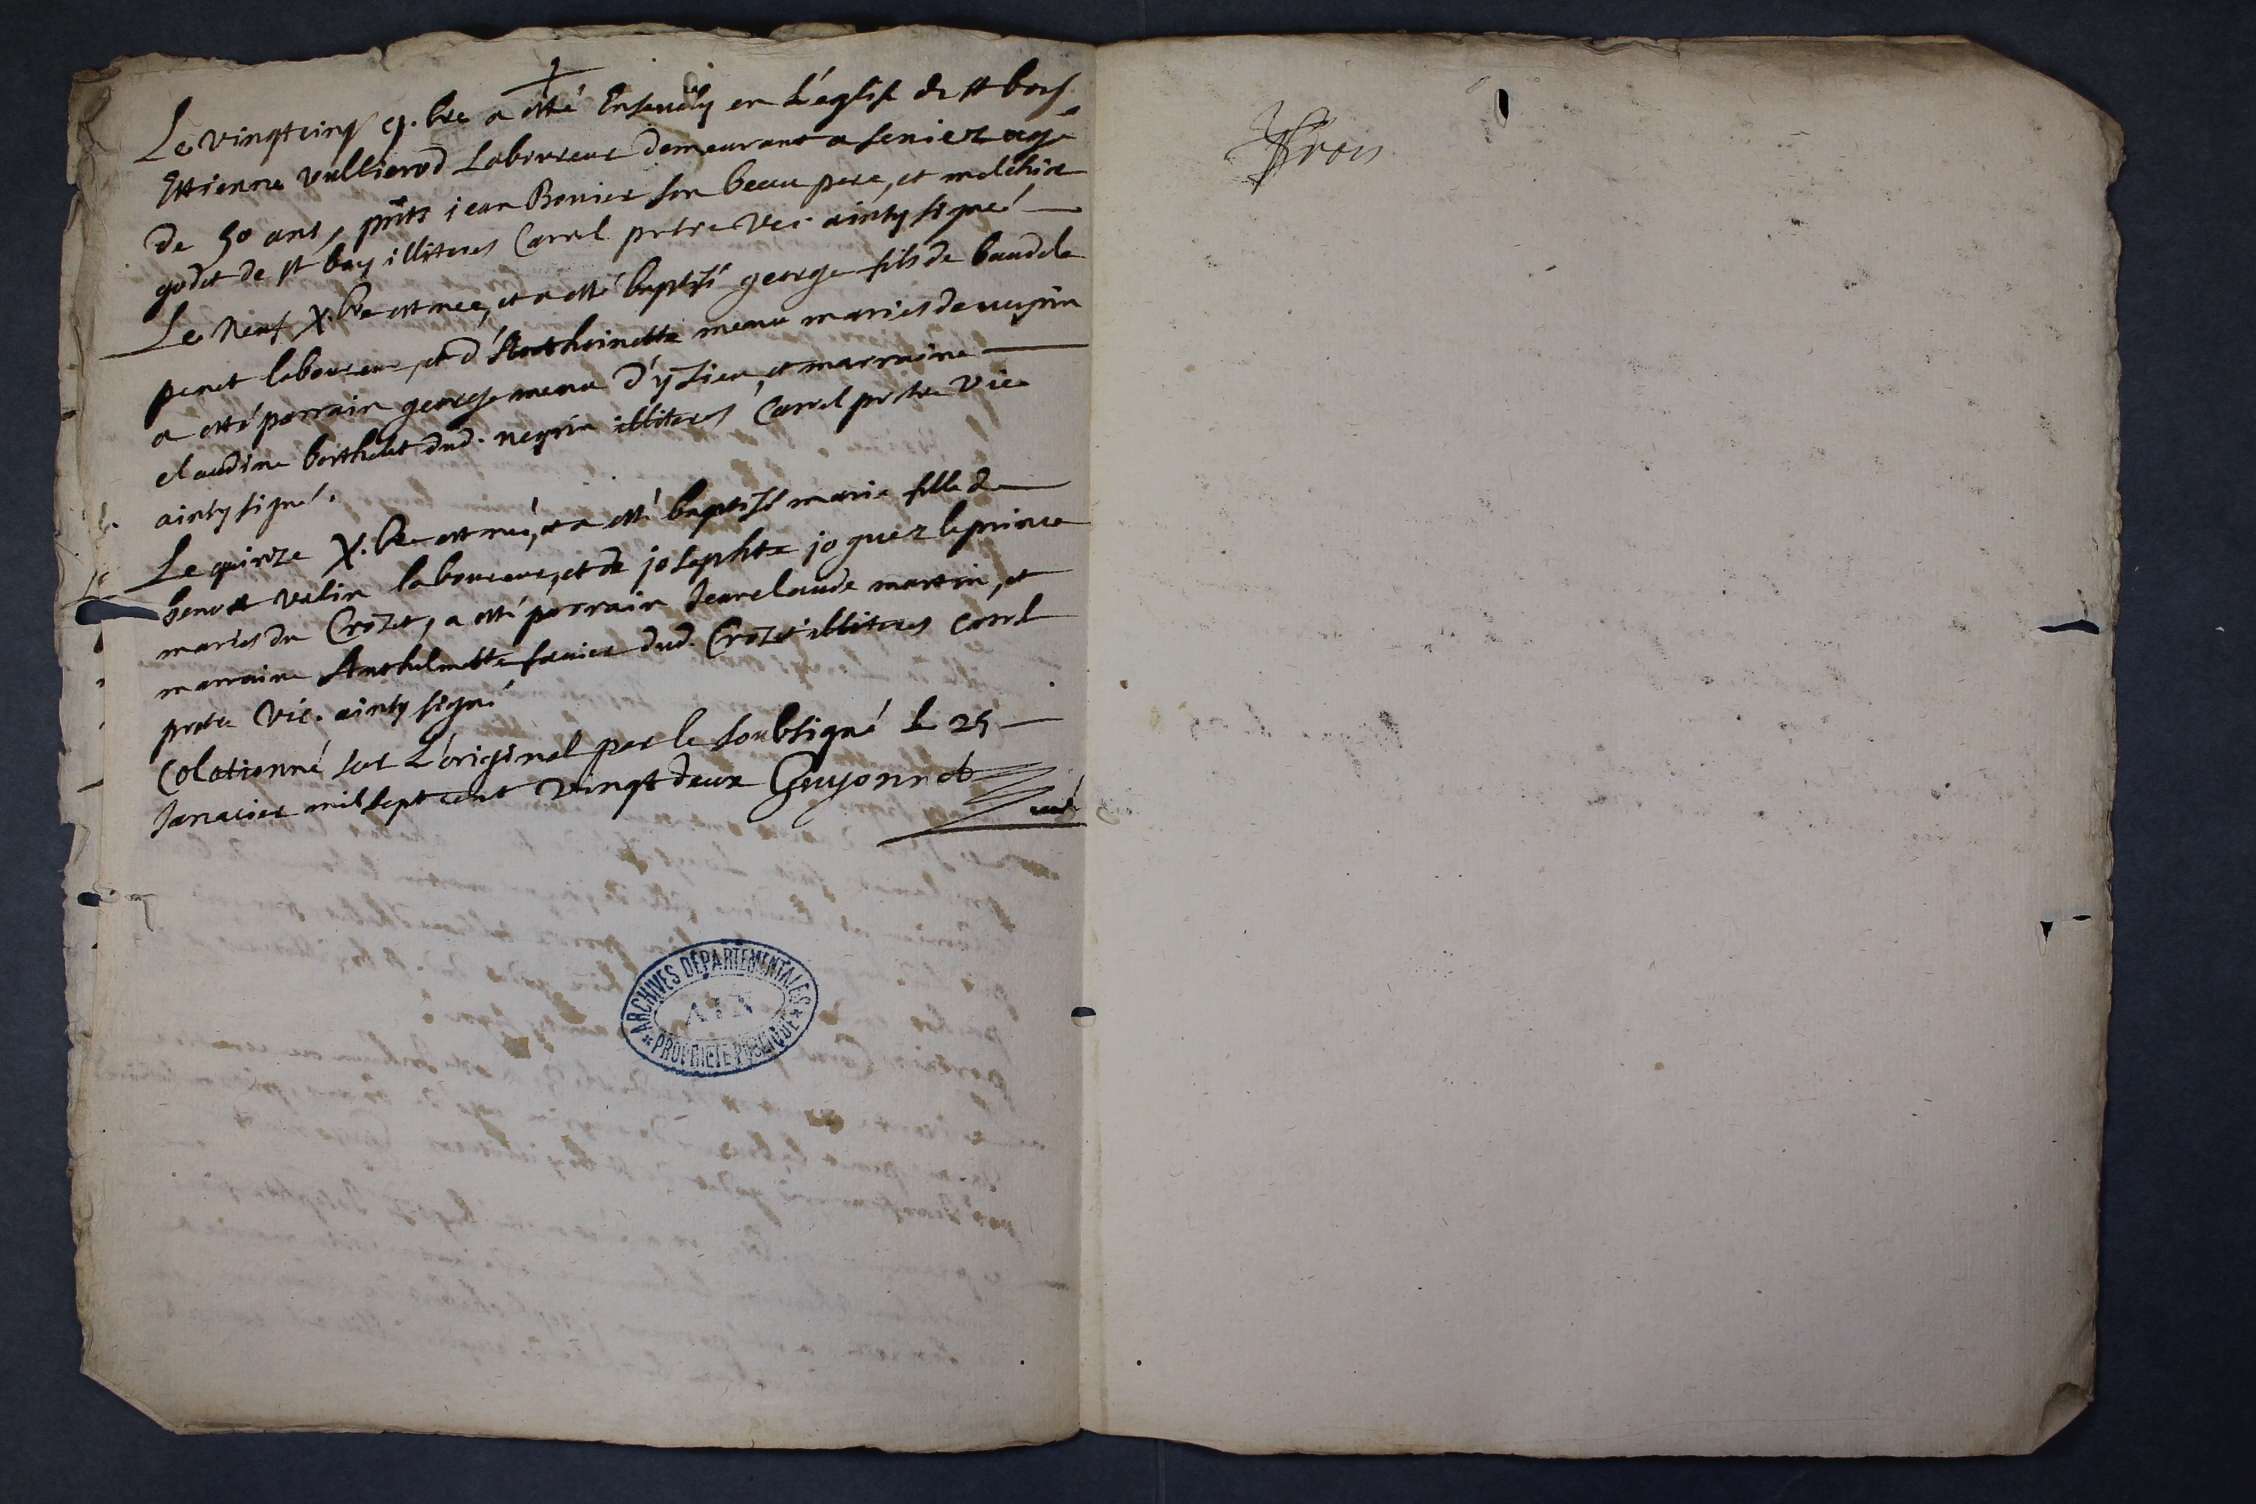 Le vingtcinq 9.bre a esté Ensevely en L'église de st bois
Estienne vullierod Laboureur demeurant a seniez agé
de 50 ans, pnts jean Bonier son beau pere, et melchior
godet de st boy illiteres Carrel prtre Vic. ainsy signé
Le Neuf X.bre est nee, et a esté baptisé george fils de baudele
penet laboureur, et d'Anthoinette menu mariés de neyrin
a esté parrain george menu d'yzieu, et marraine
claudine berthelet dud. neyrin illiteres Carrel prtre Vic.
ainsy signé.
Le quinze X.bre est née, et a esté baptisé marie fille de
benoit velin laboureur, et de josephte joguez leprince
mariés du Crozet, a esté parrain Jeanclaude martin, et
marraine Anthelmette favier dud. Crozet illiteres Carrel
prtre Vic. ainsy signé
Colationné sur L'original par le soubsigné le 25
Janvier mil sept cent vingt deux Guyonnet
curé
ARCHIVES DÉPARTEMENTALES
AIN
PROPRIÉTÉ PUBLIQUE